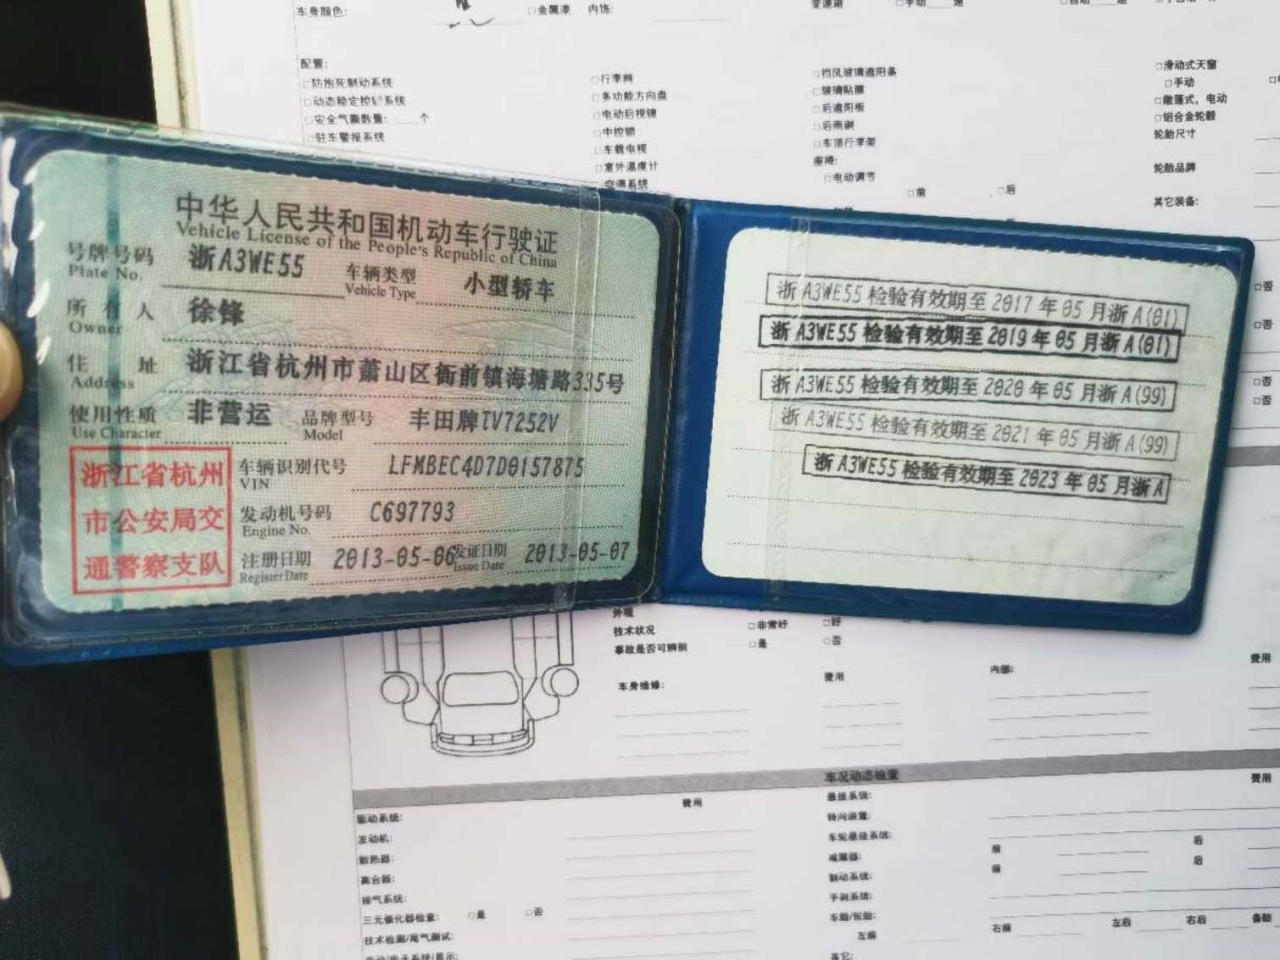 车身颜色:
□金属漆 内饰:
变速箱 □手动 速
配置:
□防抱死制动系统 □行李网 □挡风玻璃遮阳条 □滑动式天窗
□动态稳定控制系统 □多功能方向盘 □玻璃贴膜 □手动
□安全气囊数量: 个 □电动后视镜 □后遮阳板 □敞篷式,电动
□驻车警报系统 □中控锁 □后雨刷 □铝合金轮毂
□车载电视 □车顶行李架 轮胎尺寸
□室外温度计 座椅:
□空调系统 □电动调节 轮胎品牌
□前 □后
其它装备:
中华人民共和国机动车行驶证
Vehicle License of the People's Republic of China
号牌号码 浙A3WE55 车辆类型 小型轿车
Plate No. Vehicle Type
所有人 徐锋
Owner
住址 浙江省杭州市萧山区衙前镇海塘路335号
Address
使用性质 非营运 品牌型号 丰田牌TV7252V
Use Character Model
浙江省杭州
市公安局交
通警察支队
车辆识别代号 LFMBEC4D7D0157875
VIN
发动机号码 C697793
Engine No.
注册日期 2013-05-06 发证日期 2013-05-07
Register Date Issue Date
浙A3WE55 检验有效期至2017年05月浙A(01)
浙A3WE55 检验有效期至2019年05月浙A(01)
浙A3WE55 检验有效期至2020年05月浙A(99)
浙A3WE55 检验有效期至2021年05月浙A(99)
浙A3WE55 检验有效期至2023年05月浙A
□否
□否
□否
□否
外观
技术状况 □非常好 □好
事故是否可辨别 □是 □否
车身维修: 费用 内部: 费用
车况动态检查
费用 费用
驱动系统: 悬挂系统:
发动机: 转向装置:
散热器: 车轮悬挂系统: 前 后
离合器: 减震器: 前 后
排气系统: 制动系统:
三元催化器检查: □是 □否 手刹系统:
技术检测/尾气测试: 车毂/轮胎:
左前 右前 左后 右后 备胎
其它: